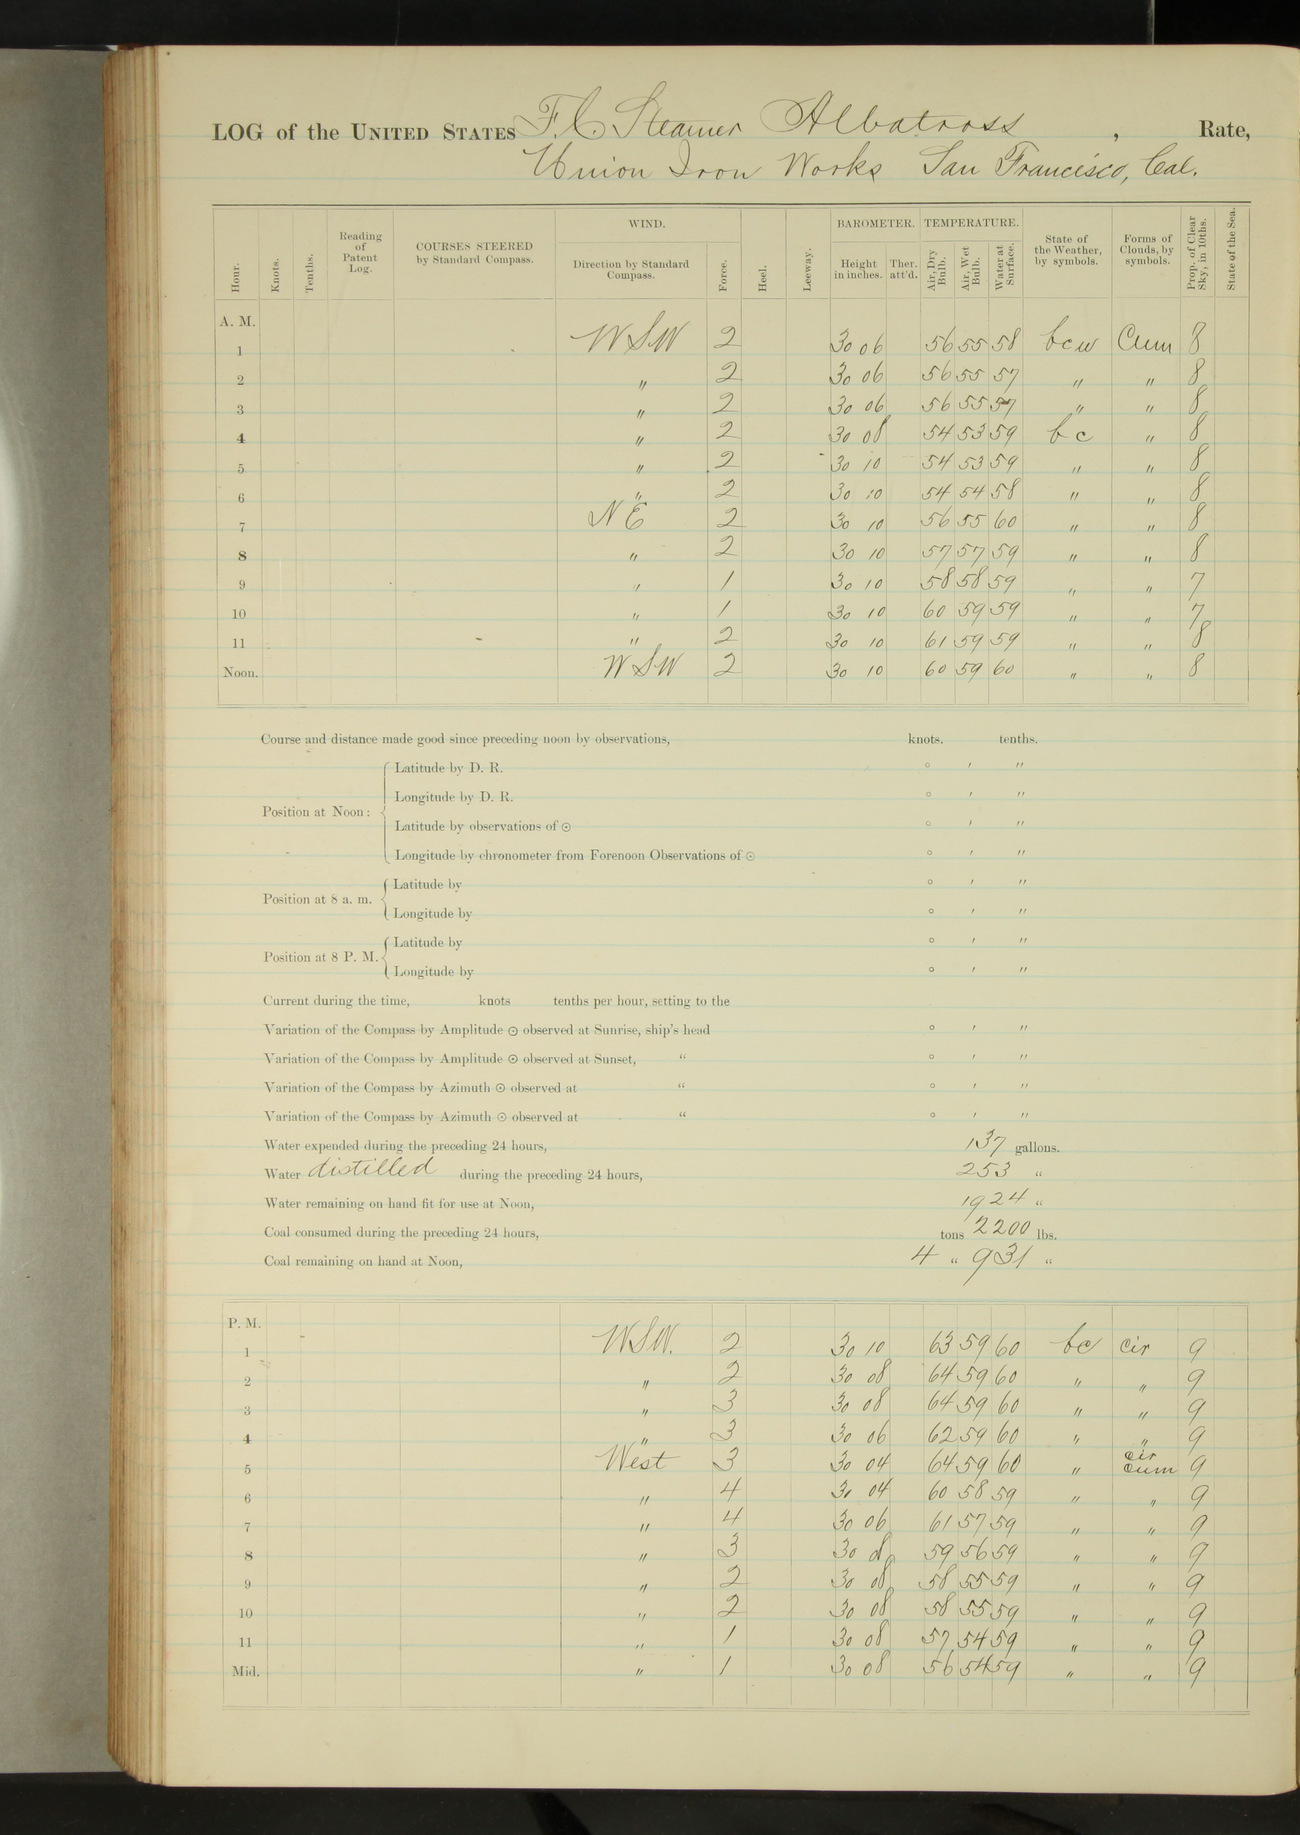 LOG of the UNITED STATES F. C. Steamer Albatross, Rate,
Union Iron Works San Francisco, Cal.
Hour. Knots. Tenths. Reading of Patent Log. COURSES STEERED by Standard Compass. WIND. Direction by Standard Compass. Force. Heel. Leeway. BAROMETER. Height in inches. Ther. att'd. TEMPERATURE. Air, Dry Bulb. Air, Wet Bulb. Water at Surface. State of the Weather, by symbols. Forms of Clouds, by symbols. Prop. of Clear Sky, in 10ths. State of the Sea.
A. M.
1 WSW 2 30 06 56 55 58 bcw Cum 8
2 " 2 30 06 56 55 57 " " 8
3 " 2 30 06 56 55 57 " " 8
4 " 2 30 08 54 53 59 bc " 8
5 " 2 30 10 54 53 59 " " 8
6 " 2 30 10 54 54 58 " " 8
7 NE 2 30 10 56 55 60 " " 8
8 " 2 30 10 57 57 59 " " 8
9 " 1 30 10 58 58 59 " " 7
10 " 1 30 10 60 59 59 " " 7
11 " 2 30 10 61 59 59 " " 8
Noon. WSW 2 30 10 60 59 60 " " 8
Course and distance made good since preceding noon by observations, knots. tenths.
Latitude by D. R. ° ′ ″
Longitude by D. R. ° ′ ″
Position at Noon:
Latitude by observations of ☉ ° ′ ″
Longitude by chronometer from Forenoon Observations of ☉ ° ′ ″
Latitude by ° ′ ″
Position at 8 a. m.
Longitude by ° ′ ″
Latitude by ° ′ ″
Position at 8 P. M.
Longitude by ° ′ ″
Current during the time, knots tenths per hour, setting to the
Variation of the Compass by Amplitude ☉ observed at Sunrise, ship's head ° ′ ″
Variation of the Compass by Amplitude ☉ observed at Sunset, " ° ′ ″
Variation of the Compass by Azimuth ☉ observed at " ° ′ ″
Variation of the Compass by Azimuth ☉ observed at " ° ′ ″
Water expended during the preceding 24 hours, 137 gallons.
Water distilled during the preceding 24 hours, 253 "
Water remaining on hand fit for use at Noon, 1924 "
Coal consumed during the preceding 24 hours, tons 2200 lbs.
Coal remaining on hand at Noon, 4 " 931 "
P. M.
1 WSW. 2 30 10 63 59 60 bc cir 9
2 " 2 30 08 64 59 60 " " 9
3 " 3 30 08 64 59 60 " " 9
4 " 3 30 06 62 59 60 " " 9
5 West 3 30 04 64 59 60 " cir cum 9
6 " 4 30 04 60 58 59 " " 9
7 " 4 30 06 61 57 59 " " 9
8 " 3 30 08 59 56 59 " " 9
9 " 2 30 08 58 55 59 " " 9
10 " 2 30 08 58 55 59 " " 9
11 " 1 30 08 57 54 59 " " 9
Mid. " 1 30 08 56 54 59 " " 9